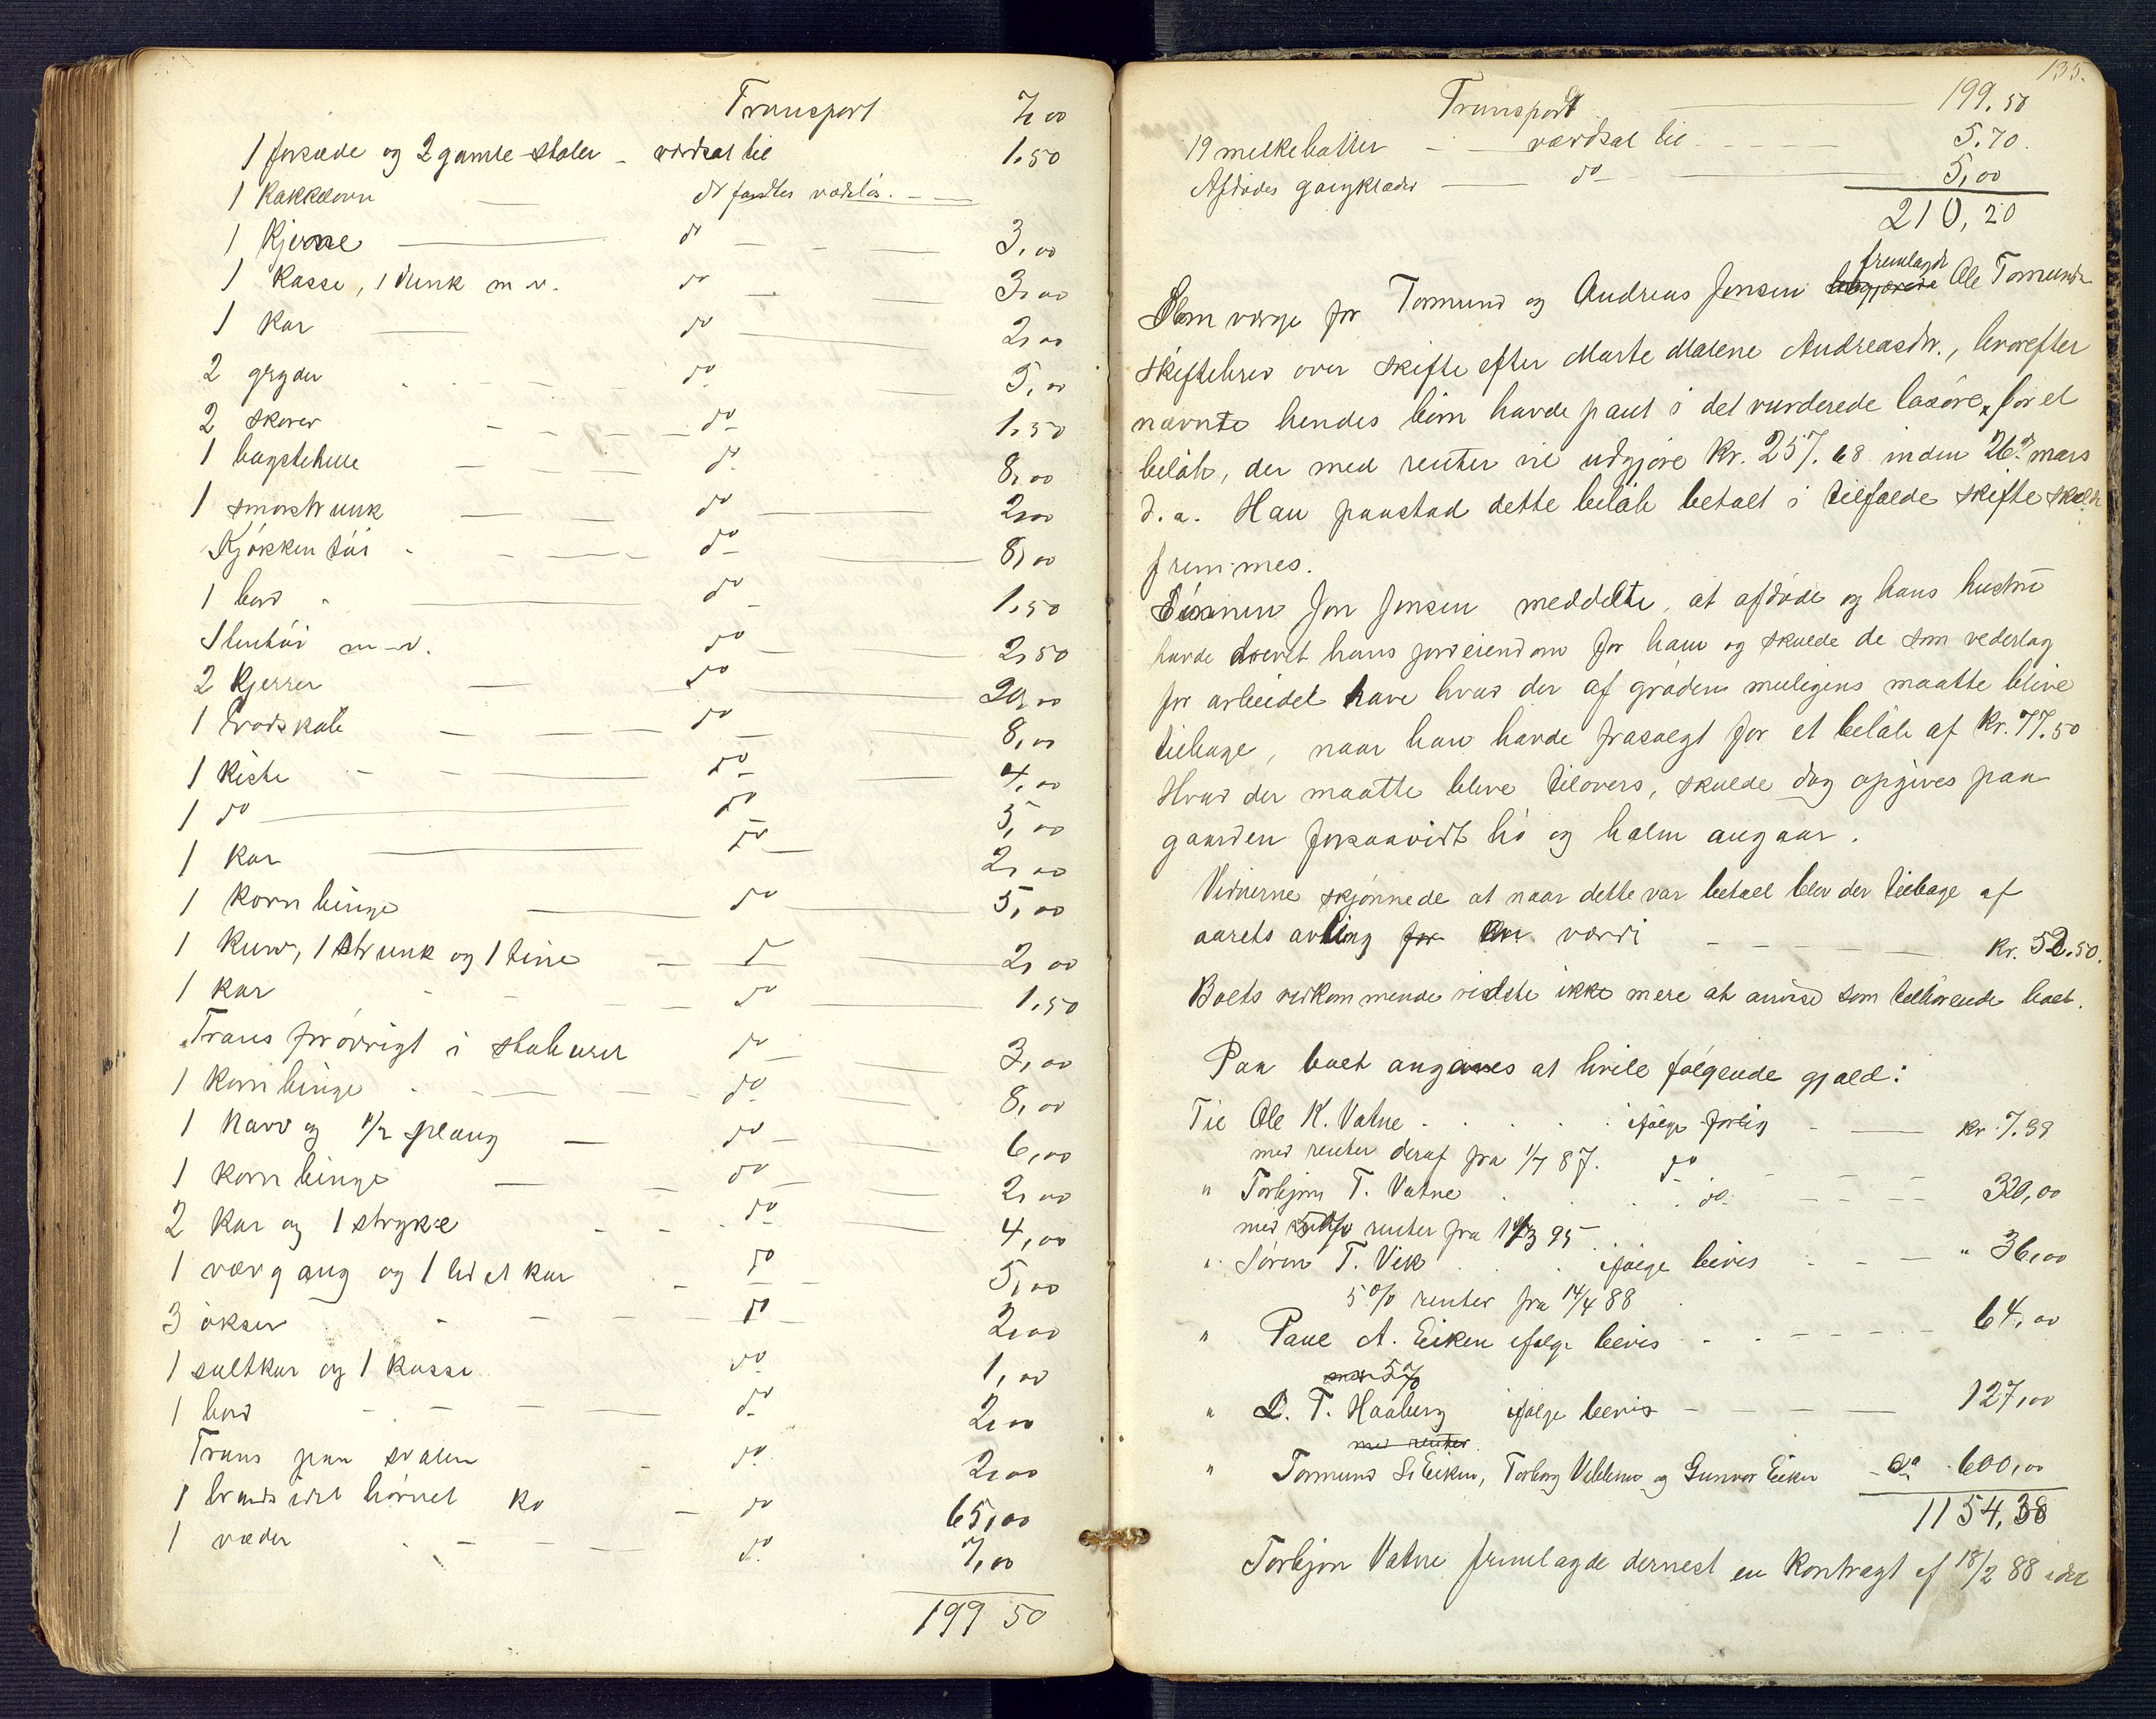 Transport 7,00
1 forsæde og 2 gamle stoler - værdsat til 1,50
1 Kakkelovn do fandtes værdiløs.
1 Kjerne do 3,00
1 Kasse, 1 dunk m. v. do 3,00
1 Kar do 2,00
2 gryder do 5,00
2 skorer do 1,50
1 bagstehelle do 8,00
1 smørstrunk do 2,00
Kjøkkentøi do 8,00
1 bord do 1,50
Stentøi m-v. do 2,50
2 Kjerrer do 20,00
1 Madskab do 8,00
1 Kiste do 4,00
1 do do 5,00
1 Kar do 2,00
1 Kornbinge do 5,00
1 Kurv, 1 strunk og 1 tine do 2,00
1 Kar do 1,50
Trans forøvrigt i staburet do 3,00
1 Kornbinge do 8,00
1 Harv og 1/2 plaug do 6,00
1 Kornbinge do 2,00
2 Kar og 1 stryke do 4,00
1 vævgang og 1 lidet kar do 5,00
3 økser do 2,00
1 saltkar og 1 kasse do 1,00
1 bord do 2,00
Trans paa svalen do 2,00
1 brandsidet hørnet Ko do 65,00
1 væder do 7,00
199 50
135.
Transport 199.50
19 melkekoller værdsat til 5.70
Afdødes gangklæder do 5,00
210,20
Som værge for Tormund og Andreas Jensen fremlagde Ole Tormunds
skiftebrev over skifte efter Marte Malene Andreasdtr., hvorefter
nævnte hendes børn havde pant i det vurderede løsøre for et
beløb, der med renter vil udgjøre Kr. 257.68 inden 26de mars
d. a. Han paastod dette beløb betalt i tilfælde skifte skulde
fremmes.
Sønnen Jon Jensen meddelte, at afdøde og hans hustru
havde drevet hans jordeiendom for ham og skulde de som vederlag
for arbeidet have hvad der af grøden muligens maatte blive
tilbage, naar han havde frasolgt for et beløb af Kr. 77.50
Hvad der maatte blive tilovers, skulde dog opgives paa
gaarden forsaavidt hø og halm angaar.
Vidnerne skjønnede at naar dette var betalt blev der tilbage af
aarets avling for værdi Kr. 52.50.
Boets vedkommende vidste ikke mere at anvise som tilhørende boet.
Paa boet angaves at hvile følgende gjæld:
Til Ole K. Vatne ifølge forlig Kr. 7.39
med renter deraf fra 1/7 87. do
" Torbjørn T. Vatne do. 320,00
med renter fra 95
" Søren T. Vik ifølge bevis " 36,00
5 % renter fra 14/4 88
" Paul A. Eiken ifølge bevis 64,00
med 5 %
" D. T. Haaberg ifølge bevis 127,00
med renter
" Tormund S. Eiken, Torborg Veblenn og Gunvor Eiken ca 600,00
1154,38
Torbjørn Vatne fremlagde dernest en Kontragt af 18/2 88 idet